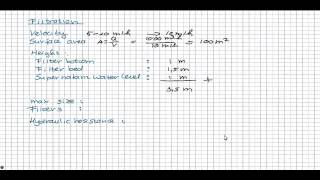 Filtration
Velocity 5-20 m/h → 10 m/h
Surface area A = Q/V = 1000 m³/h / 10 m/h = 100 m²
Height:
Filter bottom : 1 m
Filter bed : 1,5 m
Supernatant water level : 1 m +
3.5 m
max size :
Filters :
Hydraulic resistance :